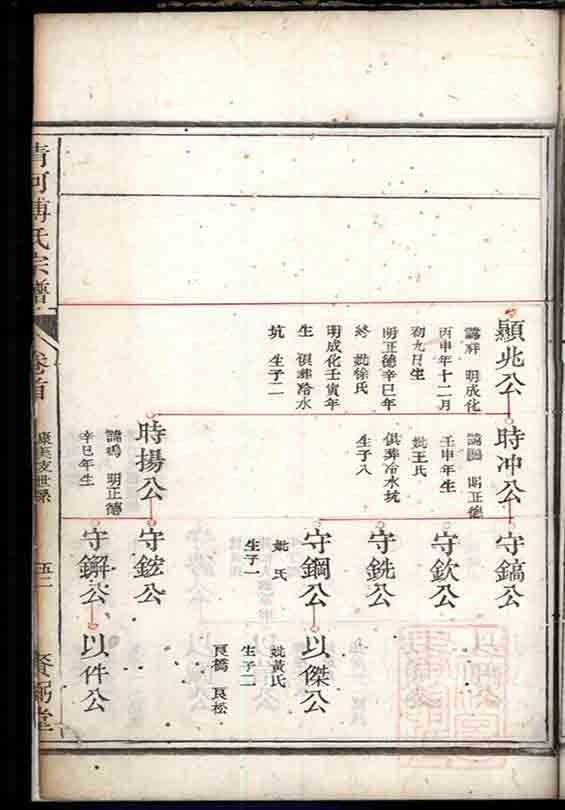 顯兆公
諱祥 明成化
丙申年十二月
初九日生
明正德辛巳年
終 妣徐氏
明成化壬寅年
生 俱葬冷水
坑 生子二
時冲公
諱鵬 明正德
壬申年生
妣王氏
俱葬冷水坑
生子八
時揚公
諱鳴 明正德
辛巳年生
守鎬公
守欽公
守銑公
守鋼公
妣 氏
生子一
守鎰公
守鑻公
以傑公
妣黃氏
生子二
良橋 良松
以件公
清河傅氏宗譜
卷首
康英支世系
五二
賚弼堂